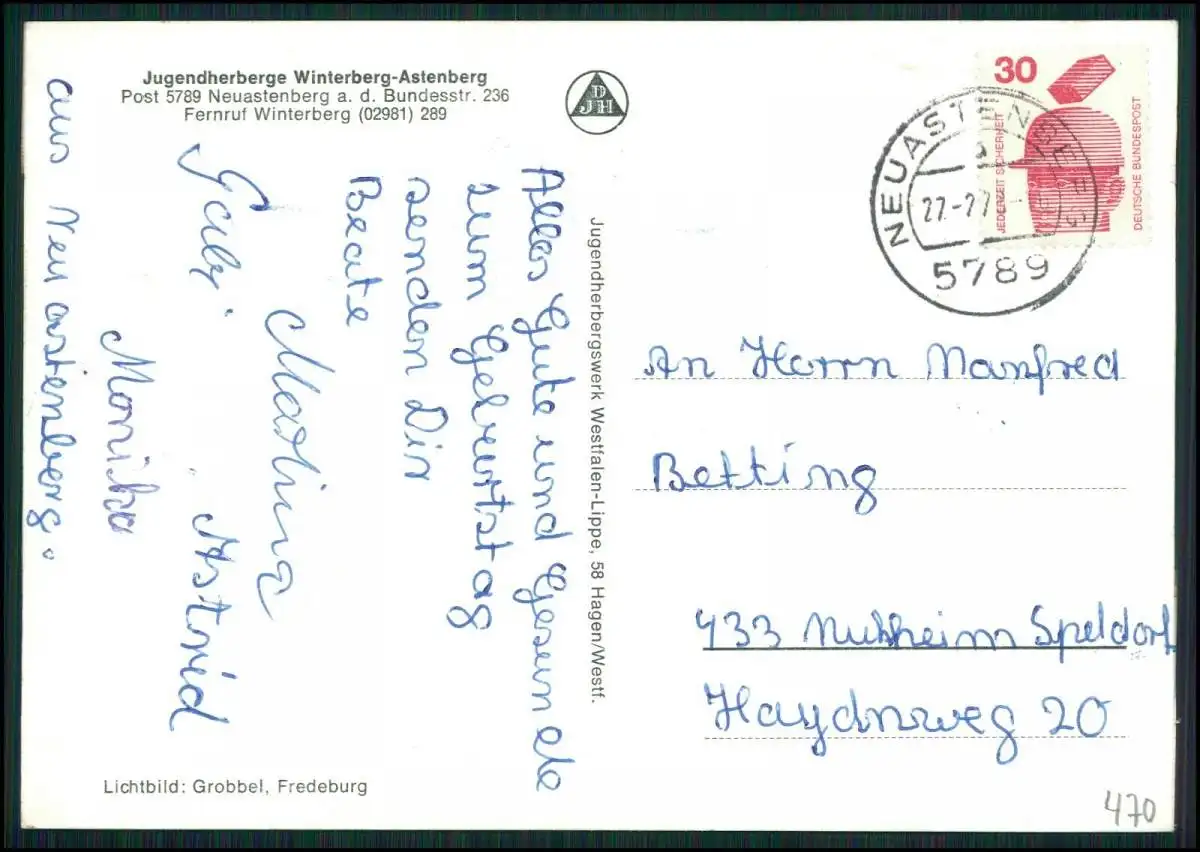 Jugendherberge Winterberg-Astenberg
Post 5789 Neuastenberg a. d. Bundesstr. 236
Fernruf Winterberg (02981) 289
DJH
30
JEDERZEIT SICHERHEIT
DEUTSCHE BUNDESPOST
NEUASTENBERG
a
27.-77.
5789
Alles Gute und Gesunde
zum Geburtstag
senden Dir
Beate
Martina
Gaby.
Astrid
Monika
aus Neuastenberg.
Jugendherbergswerk Westfalen-Lippe, 58 Hagen/Westf.
An Herrn Manfred
Betting
433 Mühheim Speldorf
Haydnweg 20
Lichtbild: Grobbel, Fredeburg
470